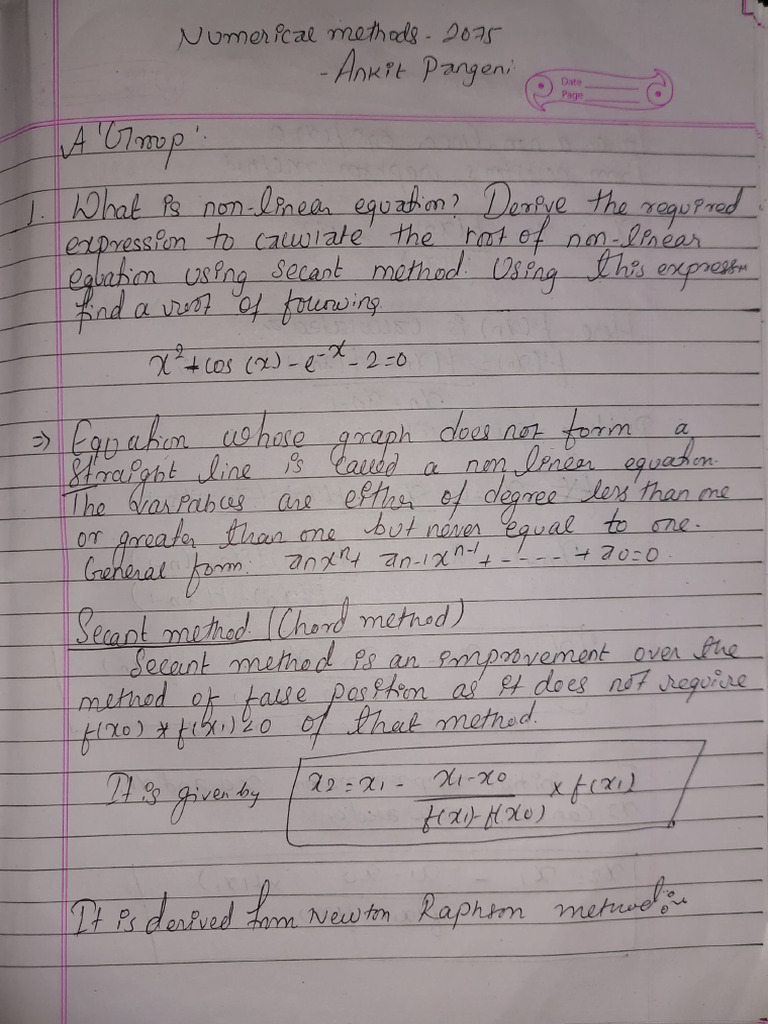 Numerical methods - 2075
- Ankit Pangeni
Date
Page
A 'Group'.
1. What is non-linear equation? Derive the required
expression to calculate the root of non-linear
equation using secant method. Using this express~
find a root of following.
x² + cos (x) - e^-x - 2 = 0
⇒ Equation whose graph does not form a
straight line is called a non linear equation.
The variables are either of degree less than one
or greater than one but never equal to one.
General form: anxⁿ + an-1xⁿ⁻¹ + - - - - + a0 = 0.
Secant method. (Chord method)
Secant method is an improvement over the
method of false position as it does not require
f(x0) * f(x1) < 0 of that method.
It is given by x2 = x1 - (x1 - x0) / (f(x1) - f(x0)) × f(x1)
It is derived from Newton Raphson method